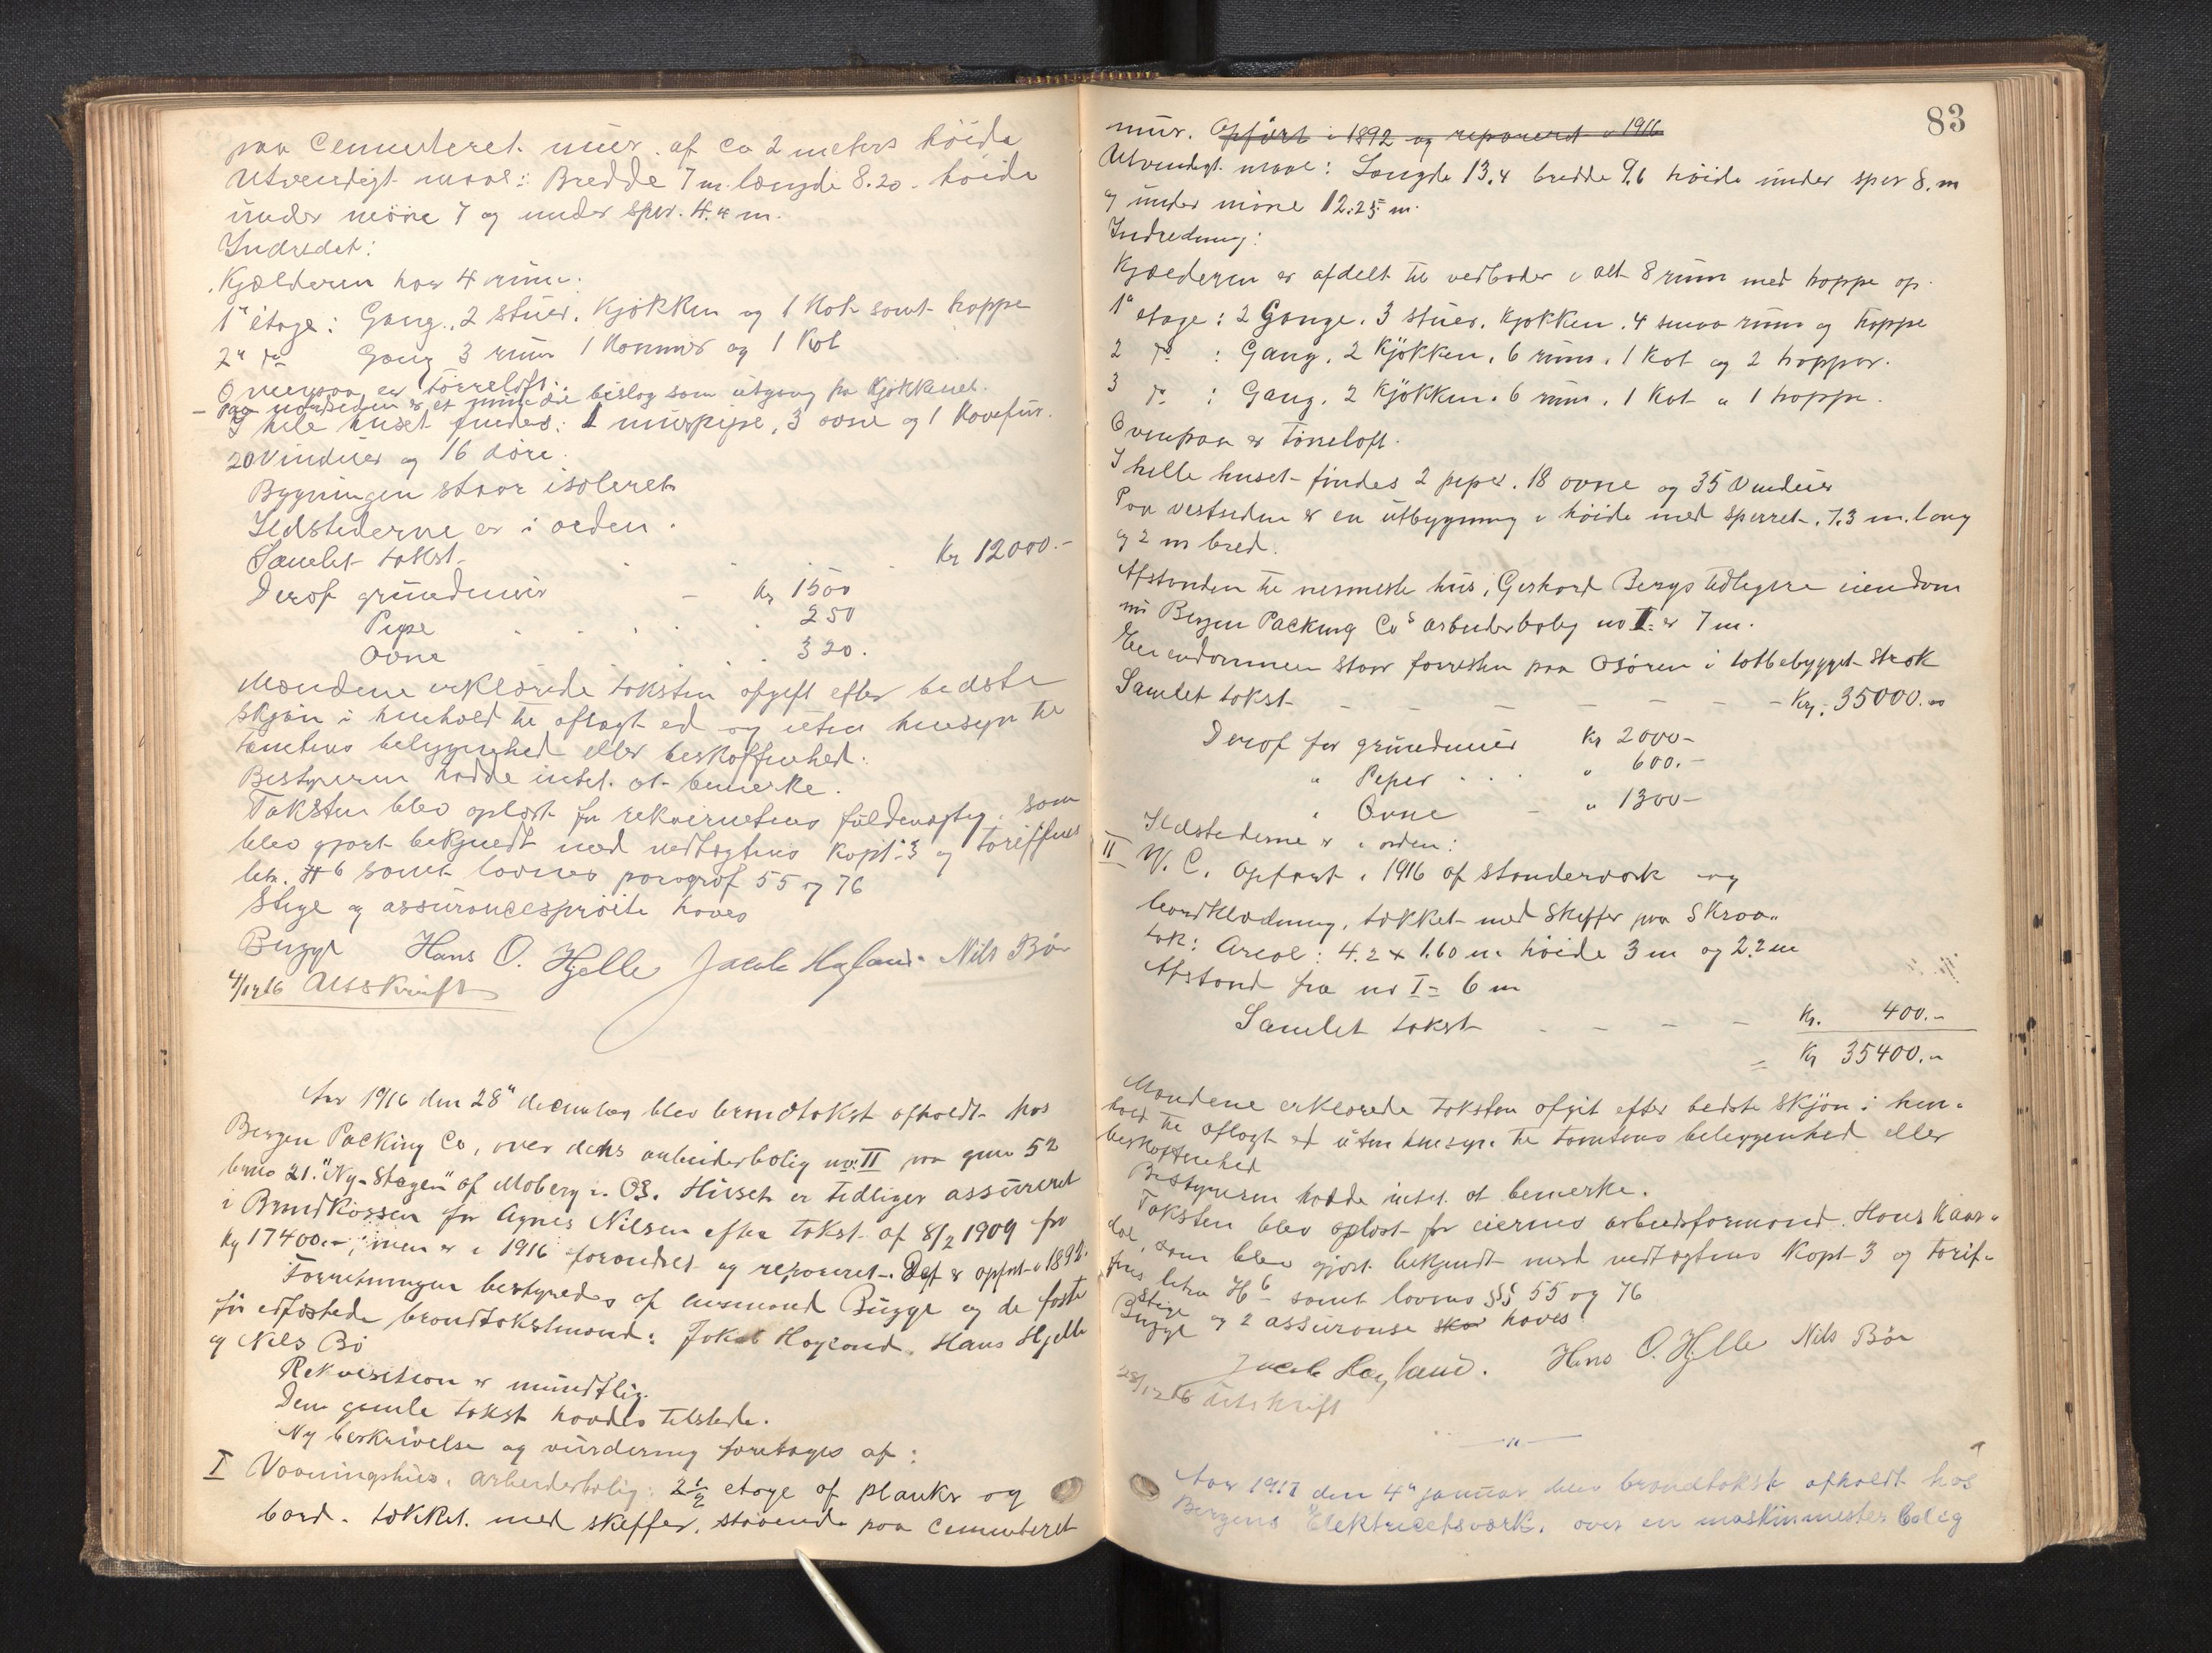 paa cementeret mur af ca 2 meters höide
Utvendigt maal: Bredde 7 m. længde 8.20. höide
under möne 7 og under sper. 4.4 m.
Indredet:
Kjælderen har 4 rum.
1ª etage: Gang, 2 stuer, Kjøkken og 1 Kot samt trappe
2ª do Gang 3 rum 1 Kammer og 1 Kot
Ovenpaa er törreloft.
- Paa nordsiden er et bislag som utgang fra Kjøkkenet.
I hele huset findes: 1 murpipe, 3 ovne og 1 Kovefür.
20 Vinduer og 16 döre.
Bygningen staar isoleret
Ildstederne er i orden.
Samlet takst. . . . Kr 12000.-
Deraf grundmur - Kr 1500
Pipe . . . . . 250
Ovne . . 320.
Mændene erklærede taksten afgit efter bedste
skjön i henhold til aflagt ed og uten hensyn til
tomtens beliggenhed eller beskaffenhed.
Bestyreren hadde intet at bemerke.
Taksten blev oplæst for rekvirentens fuldmægtig, som
blev gjort bekjendt med vedtægtens Kapt. 3 og tariffens
litr. H 6 samt lovens paragraf 55 og 76
Stige og assurancesprøite haves
Bugge Hans O. Hjelle Jacob Hagland Nils Bö
4/1 1916 Utskrift
Aar 1916 den 28" december blev brandtakst afholdt hos
Bergen Packing Co, over dens arbeiderbolig no: II paa gno 52
bruno 21. "Ny-Stagen" af Moberg i Os. Huset er tidliger assureret
i Brandkassen for Agnes Nilsen efter takst af 8/2 1909 for
Kr 17400.-, men er i 1916 forandret og reparert. Det er opført i 1892.
Forretningen bestyredes af lensmand Bugge og de faste
for edfæstede brandtakstmænd: Jakob Hagland, Hans Hjelle
og Nils Bö
Rekvisition er mundtlig.
Den gamle takst havdes tilstede.
Ny beskrivelse og vurdering foretages af:
I Vaaningshus, arbeiderbolig: 2½ etage af planker og
bord. tækket. med skeffer, staaende paa cementeret
83
mur. Opført i 1892 og repareret i 1916
Utvendigt maal: Længde 13,4 bredde 9,6 höide under sper 8. m
og under möne 12.25 m.
Indredning:
Kjælderen er afdelt til vedboder i alt 8 rum med trappe op.
1ª etage: 2 Gange, 3 stuer, Kjøkken, 4 smaa rum og trappe
2 do : Gang, 2 Kjøkken, 6 rum, 1 Kot og 2 trapper.
3 do : Gang, 2 Kjøkken, 6 rum, 1 Kot " 1 trappe.
Ovenpaa er Törreloft.
I hele huset findes 2 piper, 18 ovne og 35 Vinduer
Paa vestsiden er en utbygning i höide med sperret, 7.3 m. lang
og 2 m bred.
Afstanden til nærmeste hus, Gerhard Bergs tidligere eiendom
nu Bergen Packing Co's arbeiderbolig no I er 7 m.
Eiendommen staar forresten paa Osören i tætbebygget strøk
Samlet takst - - - - - Kr. 35000.00
Deraf for grundmur Kr 2000-
" Piper . . . " 600.-
" Ovne - " 1300-
Ildstederne er i orden:
II W. C. opført i 1916 af stenderverk og
bordklædning, tækket med skeffer paa skraa-
tak: Areal: 4.2 x 1.60 m höide 3 m og 2.2 m
Afstand fra no I = 6 m
Samlet takst - - - - Kr. 400.-
= Kr 35400.-
Mændene erklærede taksten afgit efter bedste skjön i hen-
hold til aflagt ed uten hensyn til tomtens beliggenhed eller
beskaffenhed
Bestyreren hadde intet at bemerke.
Taksten blev oplæst for eierens arbeidsformand, Hans Kaar-
dal, som blev gjort bekjendt med vedtægtens Kapt 3 og tarif-
fens litra H 6 samt lovens §§§ 55 og 76
Stige og 2 assuranse skar haves
Bugge Jacob Hagland. Hans O. Hjelle Nils Bö
28/12 16 Utskrift
- " -
Aar 1917 den 4" januar blev brandtakst afholdt hos
Bergens Elektricetsværk, over en maskinmester bolig